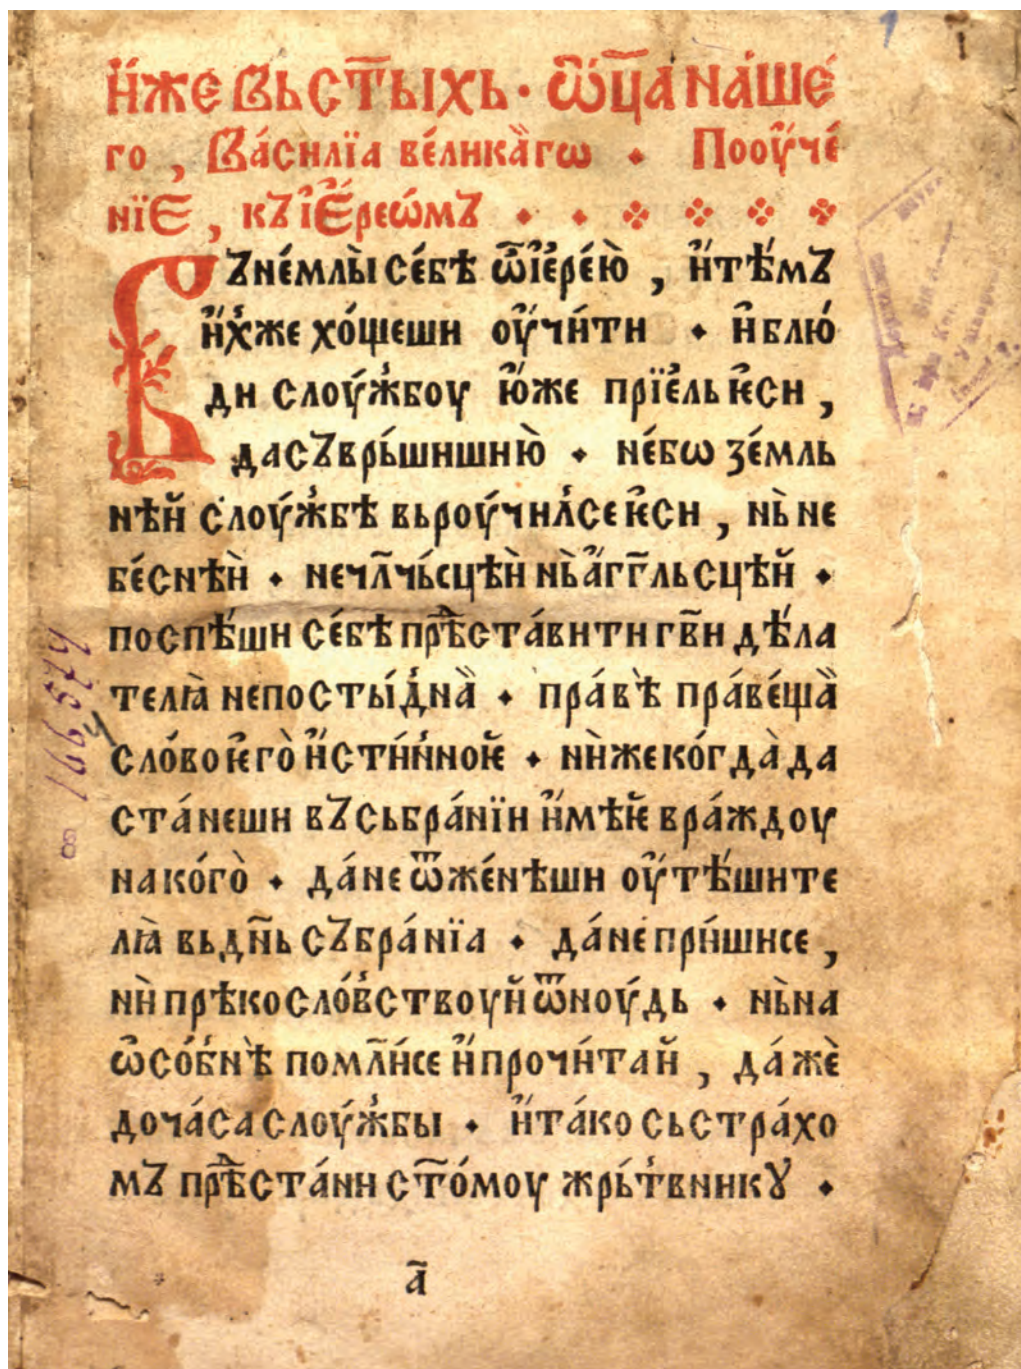 И҆́же вь ст҃ыхь · ѿц҃а на́ше
го , Васи́лїа ве́лика̀гѡ · Поᲂу҆че́
нїе , къ і҆ере́ѡмъ
Въне́млы̀ се́бѣ ѽ і҆ере́ю̀ , и҆ тѣ́мъ
и҆́хже хо́щеши ᲂу҆чи́ти · и҆ блю́
ди слоу́жбоу ю҆́же прїе́ль ѥ҆си ,
да съврь́шиши ю̀ · не́бѡ зе́мль
нѣй слоу́жбѣ вьроу́чилсе ѥ҆си , нь̀ не
бе́снѣй · не чл҃чь́сцѣй нь̀ а҆́гг҃льсцѣй ·
поспѣ́ши се́бѣ прѣⷣста́вити гв҃и дѣ́ла
телꙗ непосты́дна̀ · пра́вѣ пра́ве́ща̀
сло́во ѥ҆го̀ и҆́сти́нноѥ · ни̇же ко́гда̀ да
ста́неши въ сьбра́нїи и҆мѣ́ѥ вра́ждоу
на ко́го̀ · да́ не ѿже́нѣши ᲂу҆тѣ́шите
лꙗ вь дн҃ь събра́нїа · да́ не при́шисе ,
ни̇ прѣкосло́вствоуй ѿноу́дь · нь̀ на
ѡ҆со́бнѣ помл҃и́се и҆ прочи́тай , да́жѐ
до ча́са слоу́жбы · и҆ та́ко сь стра́хо
мъ прѣⷣста́ни ст҃о́моу жрь́твникꙋ ·
а҃
1